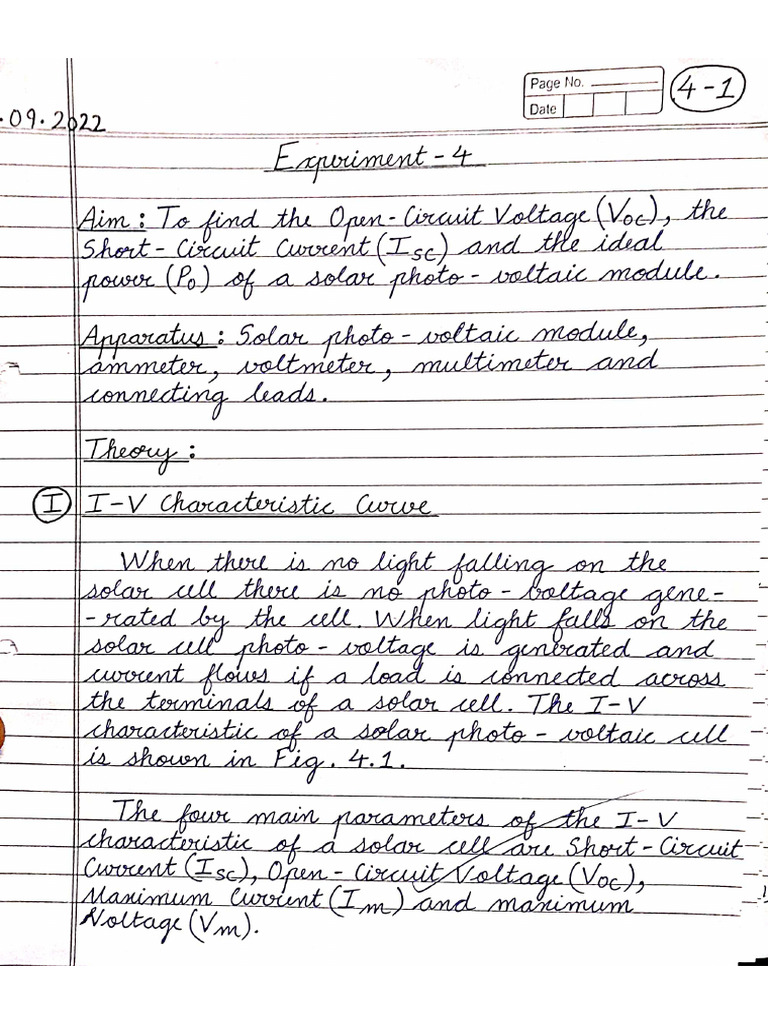 Page No.
4-1
Date
.09.2022
Experiment-4
Aim: To find the Open-Circuit Voltage (Voc), the
Short-Circuit Current (Isc) and the ideal
power (Po) of a solar photo-voltaic module.
Apparatus: Solar photo-voltaic module,
ammeter, voltmeter, multimeter and
connecting leads.
Theory:
I I-V Characteristic Curve
When there is no light falling on the
solar cell there is no photo-voltage gene-
-rated by the cell. When light falls on the
solar cell photo-voltage is generated and
current flows if a load is connected across
the terminals of a solar cell. The I-V
characteristic of a solar photo-voltaic cell
is shown in Fig. 4.1.
The four main parameters of the I-V
characteristic of a solar cell are Short-Circuit
Current (Isc), Open-Circuit Voltage (Voc),
Maximum Current (Im) and maximum
Voltage (Vm).